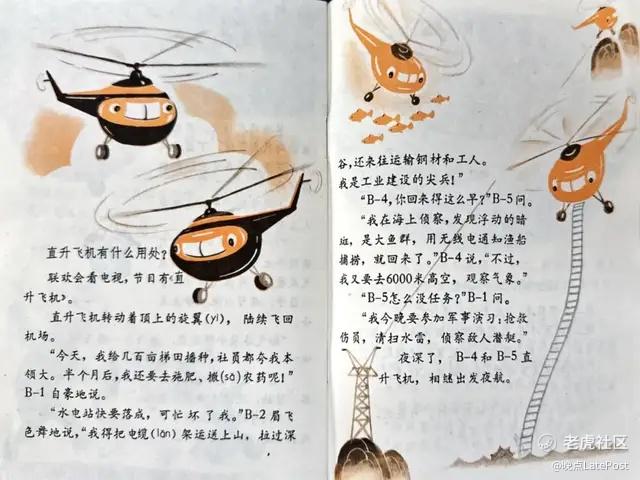 直升飞机有什么用处?
联欢会看电视,节目有《直
升飞机》。
直升飞机转动着顶上的旋翼(yì),陆续飞回
机场。
“今天,我给几百亩梯田播种,社员都夸我本
领大。半个月后,我还要去施肥、撒(sǎ)农药呢!”
B-1 自豪地说。
“水电站快要落成,可忙坏了我。”B-2 眉飞
色舞地说,“我得把电缆(lǎn)架运送上山,拉过深
谷,还来往运输钢材和工人。
我是工业建设的尖兵!”
“B-4,你回来得这么早?”B-5问。
“我在海上侦察,发现浮动的暗
斑,是大鱼群,用无线电通知渔船
捕捞,就回来了。”B-4说,“不过,
我又要去6000米高空,观察气象。”
“B-5怎么没任务?”B-1问。
“我今晚要参加军事演习:抢救
伤员,清扫水雷,侦察敌人潜艇。”
夜深了,B-4和B-5直
升飞机,相继出发夜航。
老虎社区
@晚点LatePost